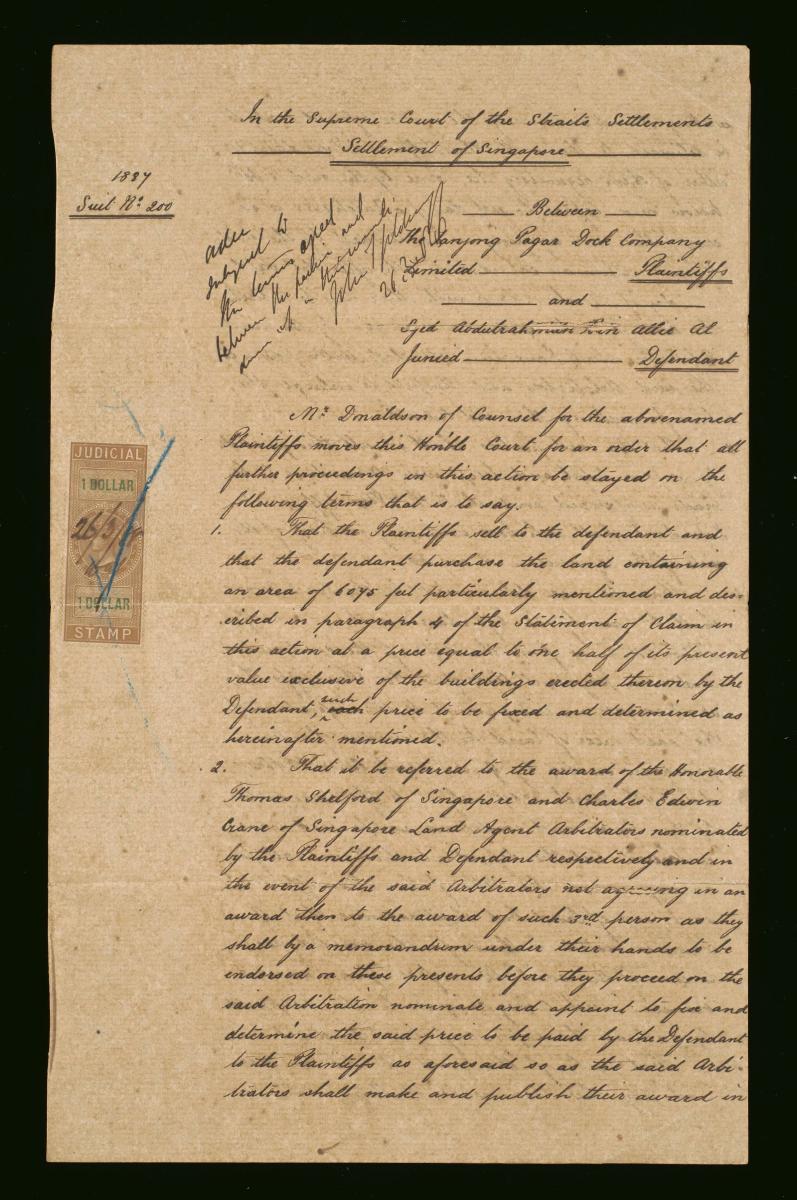 In the Supreme Court of the Straits Settlements
Settlement of Singapore
1887
Suit No. 200
Order
subject to
the terms agreed
between the parties and
drawn up in
John T Goldney
26 Mar
Between
The Tanjong Pagar Dock Company
Limited Plaintiffs
and
Syed Abdulrahman bin Allie Al
Junied Defendant
Mr. Donaldson of Counsel for the abovenamed
Plaintiffs moves this Honble Court for an order that all
further proceedings in this action be stayed on the
following terms that is to say.
1. That the Plaintiffs sell to the defendant and
that the defendant purchase the land containing
an area of 6075 feet particularly mentioned and des-
cribed in paragraph 4 of the Statement of Claim in
this action at a price equal to one half of its present
value exclusive of the buildings erected thereon by the
Defendant, such each price to be fixed and determined as
hereinafter mentioned.
2. That it be referred to the award of the Honorable
Thomas Shelford of Singapore and Charles Edwin
Crane of Singapore Land Agent Arbitrators nominated
by the Plaintiffs and Defendant respectively and in
the event of the said Arbitrators not agreeing in an
award then to the award of such 3rd person as they
shall by a memorandum under their hands to be
endorsed on these presents before they proceed on the
said Arbitration nominate and appoint to fix and
determine the said price to be paid by the Defendant
to the Plaintiffs as aforesaid so as the said Arbi-
trators shall make and publish their award in
JUDICIAL
1 DOLLAR
26/3/
1 DOLLAR
STAMP